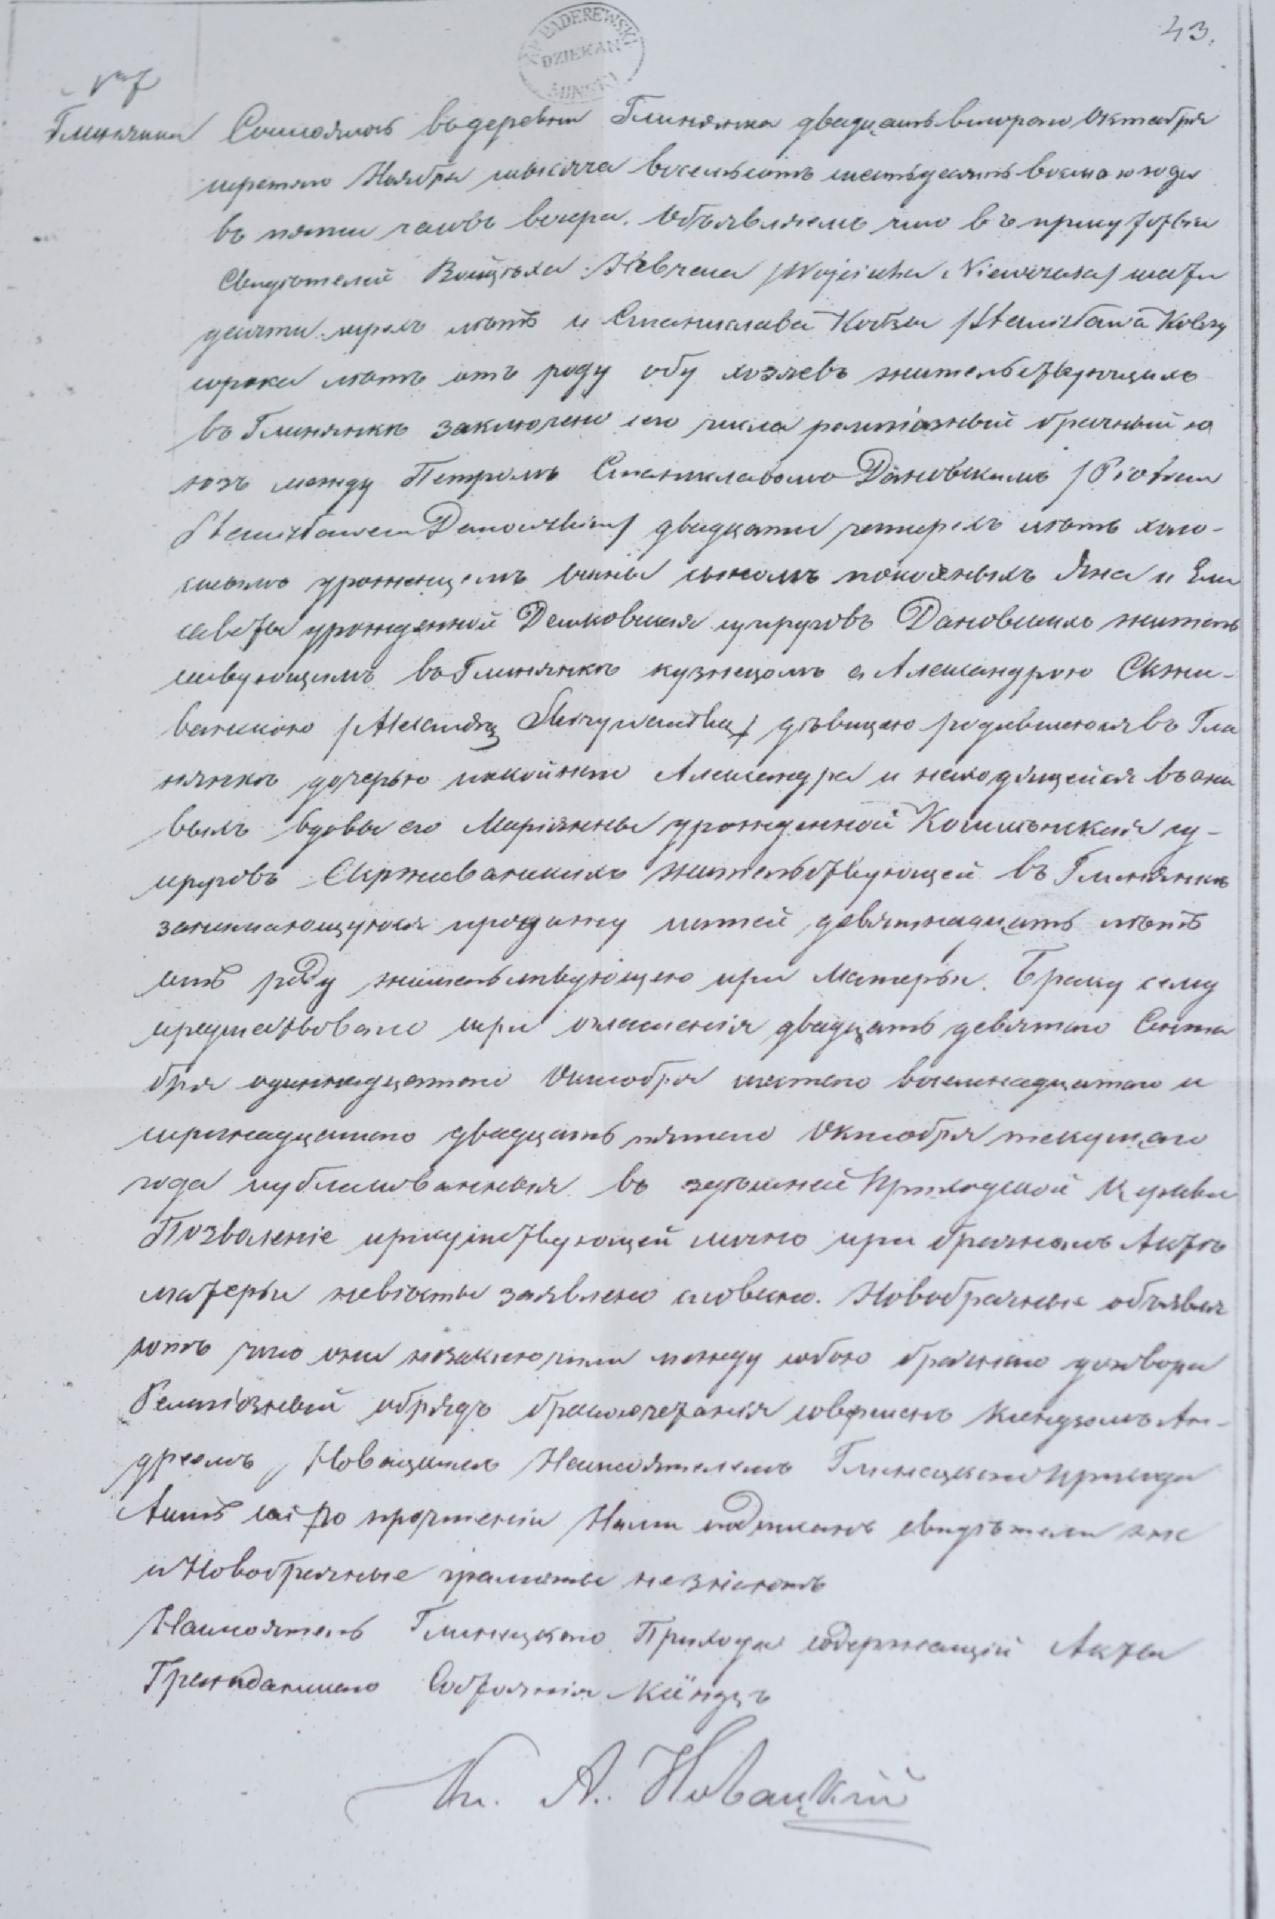 43.
DZIEKAN
MIŃSKI
№ 7
Глинянка Состоялось въ деревни Глинянка двадцать втораго Октября
третяго Ноября тысяча восемьсотъ шестьдесятъ восмаго года
въ пяти часовъ вечера. Объявляемъ что въ присутствіи
Свидѣтелей Войцѣха /Wojciecha Niewczasa/
десяти лѣтъ и Станислава Кобзы /Stanisława Kobzy
сорока лѣтъ отъ роду обу хозяевъ жительствующихъ
въ Глинянкѣ заключено сего числа религіозный брачный со
юзъ между Петромъ Станиславомъ Дановскимъ /Piotrem
Stanisławem Danowskim/ двадцати четырехъ лѣтъ холо-
стымъ сыномъ покойныхъ Яна и Ели
саветы урожденной супруговъ Дановскихъ житель
ствующимъ въ Глинянкѣ кузнецомъ а Александрою Скжи-
ванскою /Alexandrą Skrzywańską/ дѣвицею родившеюся въ Гли
нянкѣ дочерью покойнаго Александра и находящейся въ жи
выхъ вдовы его Маріянны урожденной су-
пруговъ Скрживанскихъ жительствующей въ Глинянкѣ
занимающуюся продажу девятнадцать лѣтъ
отъ роду жительствующею при Матери. Браку сему
предшествовало три оглашенія двадцать девятаго Сентя
бря одиннадцатаго Октября шестаго восемнадцатаго и
тринадцатаго двадцать пятаго Октября текущаго
года публикованныя въ здѣшней Приходской Церкви
Позволеніе присутствующей лично при брачномъ Актѣ
матери невѣсты заявлено словесно. Новобрачные объявля
ютъ что они незаключили между собою брачнаго договора
Религіозный обрядъ бракосочетанія совершенъ Ксендзомъ Ан-
дреемъ Новацкимъ Настоятелемъ Глинецкаго Прихода
Актъ сей по прочтеніи Нами подписанъ свидѣтели же
и Новобрачные грамоты незнаютъ
Настоятель Глинецкаго Прихода содержащій Акты
Гражданскаго Состоянія Ксіндзъ
Кс. А. Новацкій